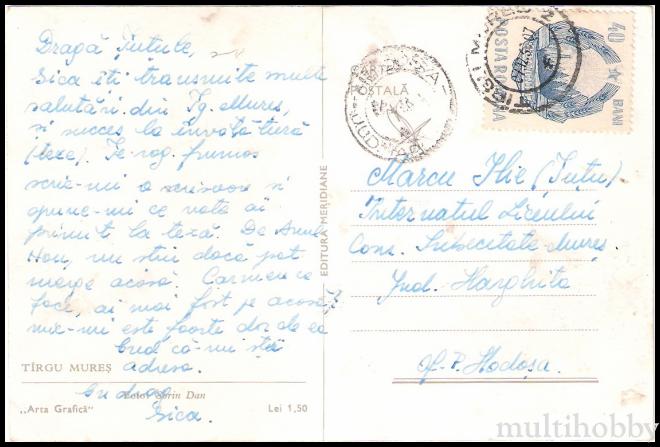 Dragă Țuțule,
Sica îți transmite mult
salutări din Tg. Mureș,
și succes la învățătură
(teze). Te-rog frumos
scrie-mi o scrisoare și
spune-mi ce notă ai
primit la teză. De Anul
Nou, nu știu dacă pot
merge acasă. Carmen ce
face, ai mai fost pe acasă?
mie-mi este foarte dor de ea
Cred că-mi știi
adresa.
Cu drag
Sica.
TÎRGU MUREȘ
Foto: Sorin Dan
„Arta Grafică"
Lei 1,50
EDITURA MERIDIANE
CARTE POȘTALĂ
40 BANI
POSTA ROMANA
Marcu Ilie (Țuțu)
Internatul Liceului
Com. Subcetate-Mureș
Jud. Harghita
Of. P. Hodoșa.
multihobby